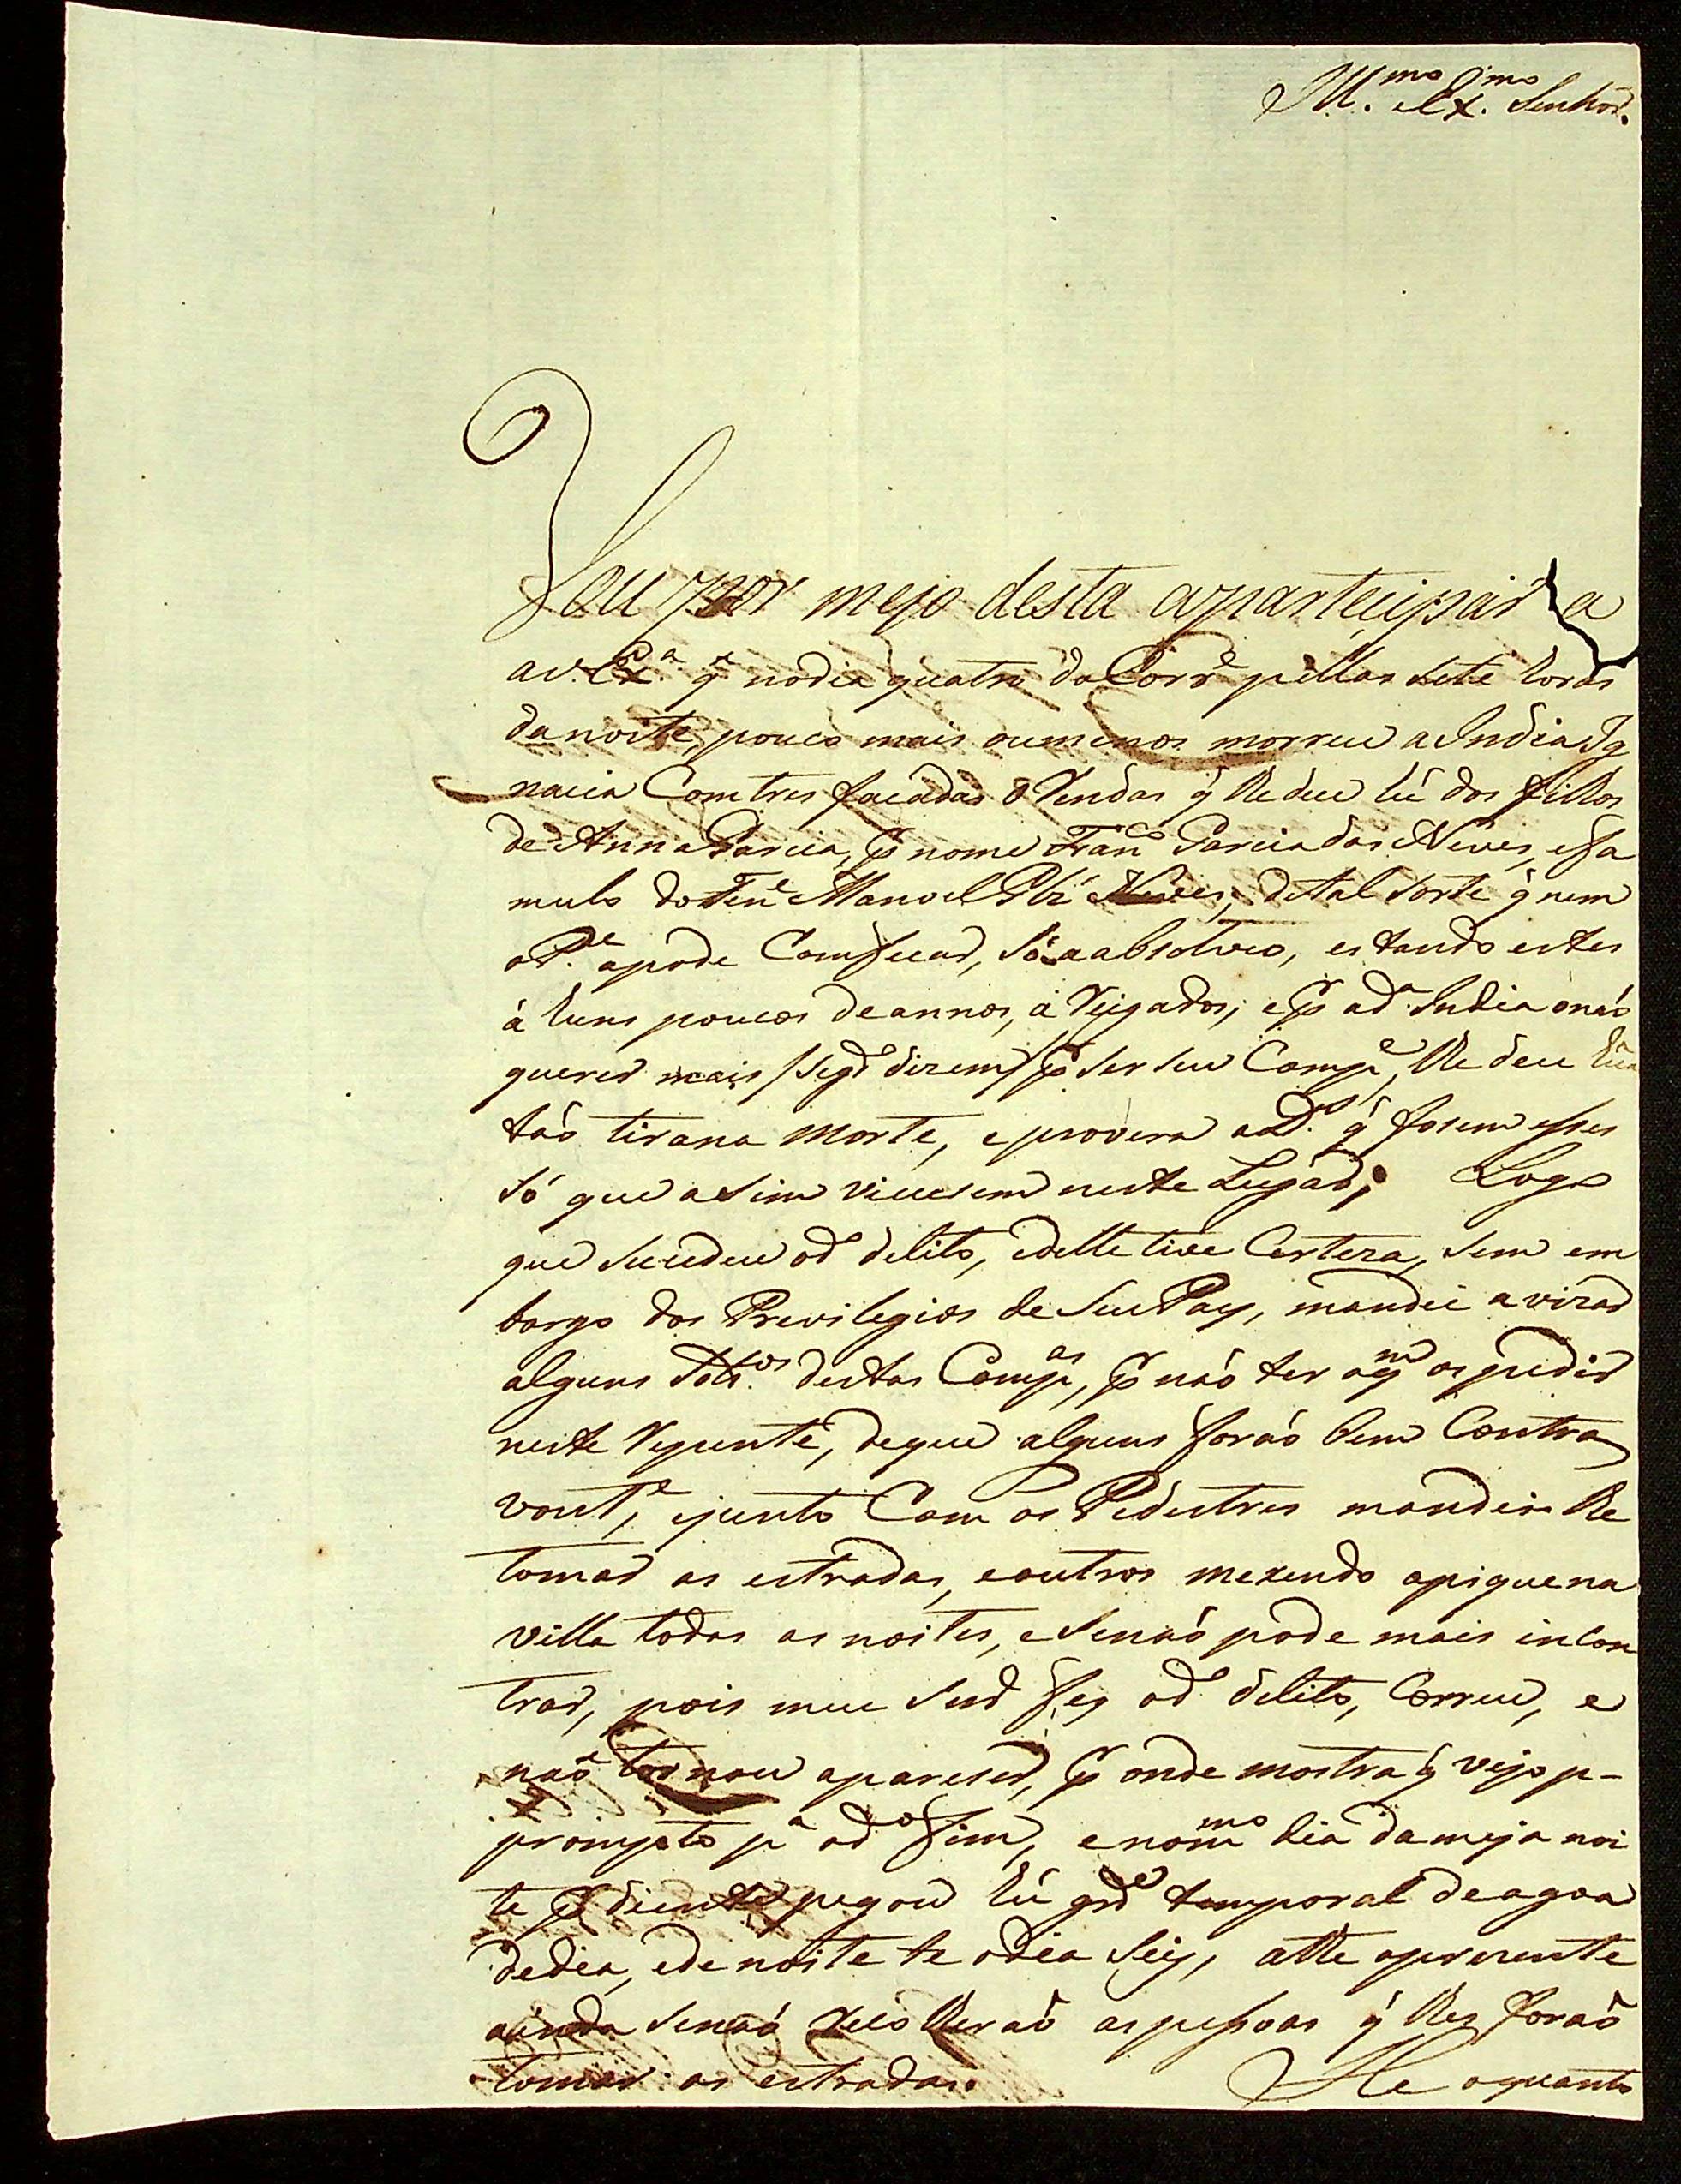 Ill.mo eEx.mo Senhor.
Vou por mejo desta apartecipar a
aV. Ex.a q̃ nodia quatro do Corr.e pellas sete horas
da noite, pouco mais oumenos morreu a India Ig
nacia Comtres facadas q̃ lhe deu hú dos filhos
de Anna Garcia, p̃ nome Fran.co Garcia das Neves, e fa
mulo do Ten.e Manoel; detal sorte q̃ nem
oP.e apode Comfeçar, só aabsolveo, estando estes
á huns poucos deannos, e p̃ ad.a India onaó
querer mais /segd.o dizem/ p̃ ser seu Comp.e, lhe deu húa
taó tirana morte, e provera aD.s q̃ fosem esses
só que asim vivesem neste Lugar; Logo
que sucedeu od.o delito, edelle tive Certeza, sem em
bargo dos Previlegios de seu Pay, mandei avizar
alguns Sold.os destas Comp.as, p̃ naó ter aq.m os pedir
neste Repente, deque alguns foraó bem Contra
vont.e, ejunto Com os Pedestres mandei lhe
tomar as estradas, eoutros mexendo apiquena
villa todas as noites, esenaó pode mais incon
trar, pois meu Snr̃ fes od.o delito, Correu, e
naó tornou apareser, p̃ onde mostra q̃ vejo p-
prompto p.a od.o fim, enom.mo dia dameja noi
te p̃ diente pegou hú gr.de temporal deagoa
dedia, ede noite te odia seis, atte oprezente
ainda senaó Recolheraó aspessoas q̃ lhes foraó
tomar as estradas. He oquanto